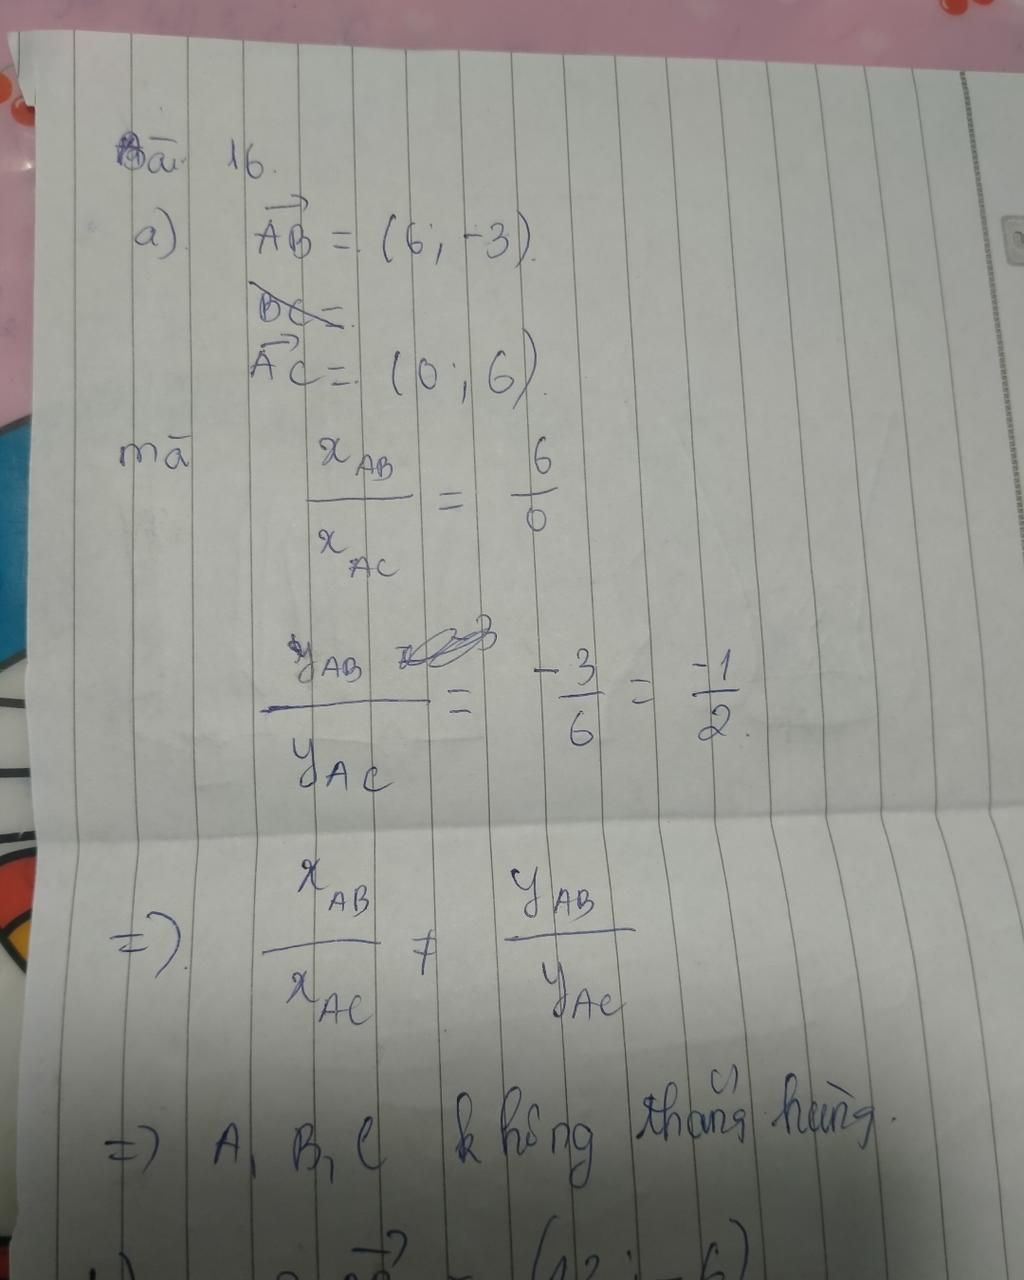 Bài 16.
a) AB = (6; -3).
BC =
AC = (0; 6).
mà x_AB / x_AC = 6 / 0
y_AB / y_AC = -3 / 6 = -1 / 2.
=> x_AB / x_AC ≠ y_AB / y_AC
=> A, B, C không thẳng hàng.